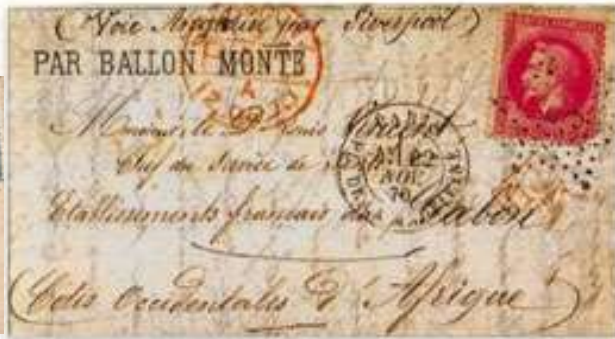 (Voie Anglaise par Liverpool)
PAR BALLON MONTÉ
Monsieur le Dr Louis
Chef du Service de
Etablissements français du Gabon
(Côtes Occidentales d'Afrique)